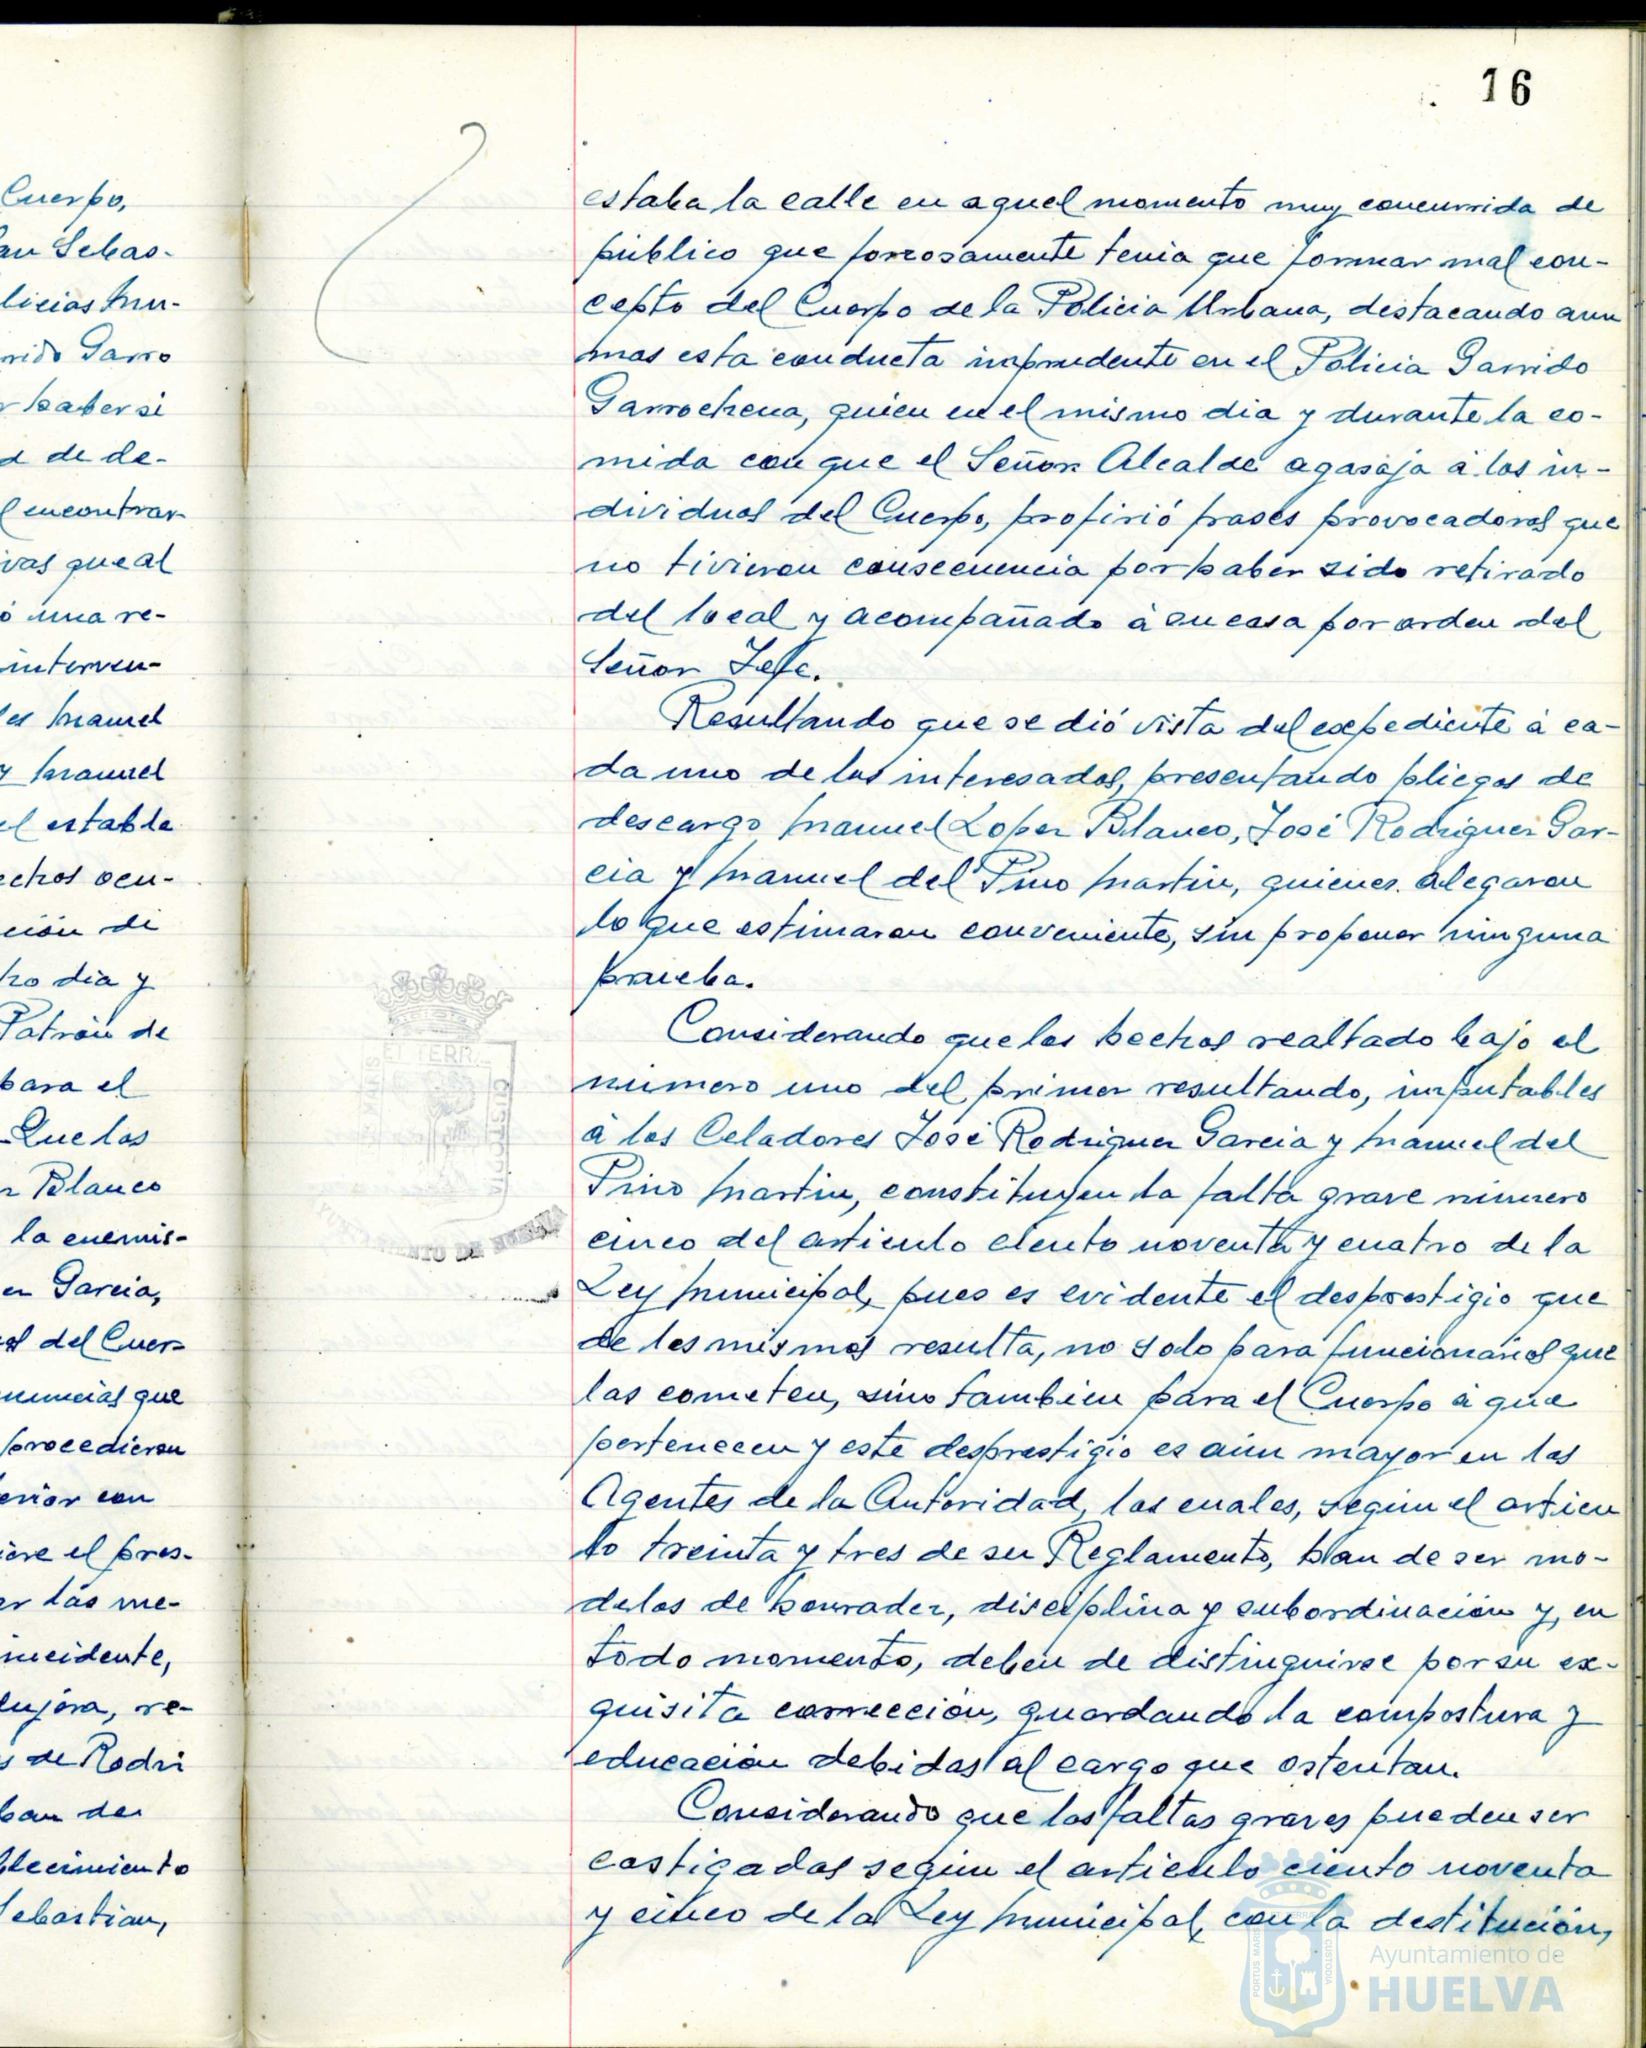 Cuerpo,
an Sebas-
licias Mu-
rrido Garro
r haber si
d de de-
l encontrar
ivas que al
ó una re-
interven-
les Manuel
y Manuel
el estable
echos ocu-
ción di
ho dia y
Patrón de
para el
Que los
z Blanco
la enemis-
ez Garcia,
del Cuer-
nuncias que
procedieron
erior con
el pres-
er las me-
incidente,
re-
s de Rodri
ban de
blecimiento
Sebastian,
16
estaba la calle en aquel momento muy concurrida de
público que forzosamente tenia que formar mal con-
cepto del Cuerpo de la Policia Urbana, destacando aun
mas esta conducta imprudente en el Policia Garrido
Garrochena, quien en el mismo dia y durante la co-
mida con que el Señor Alcalde agasaja á los in-
dividuos del Cuerpo, profirió frases provocadoras que
no tivieron consecuencia por haber sido retirado
del local y acompañado á su casa por orden del
Señor Jefe.
Resultando que se dió vista del expediente á ca-
da uno de los interesados, presentando pliegos de
descargo Manuel Lopez Blanco, José Rodriguez Gar-
cia y Manuel del Pino Martin, quienes alegaron
lo que estimaron conveniente, sin proponer ninguna
prueba.
Considerando que los hechos realtado bajo el
número uno del primer resultando, imputables
á los Celadores José Rodriguez Garcia y Manuel del
Pino Martin, constituyen la falta grave número
cinco del articulo ciento noventa y cuatro de la
Ley Municipal, pues es evidente el desprestigio que
de los mismos resulta, no solo para funcionarios que
las cometen, sino tambien para el Cuerpo á que
pertenecen y este desprestigio es aún mayor en los
Agentes de la Autoridad, los cuales, según el articu
lo treinta y tres de su Reglamento, han de ser mo-
delos de honradez, disciplina y subordinación y, en
todo momento, deben de distinguirse por su ex-
quisita corrección, guardando la compostura y
educación debidas al cargo que ostentan.
Considerando que las faltas graves pueden ser
castigadas según el articulo ciento noventa
y cinco de la Ley Municipal, con la destitución,
ET TERR
CUSTODIA
AYUNTAMIENTO DE HUELVA
PORTUS MARIS
CUSTODIA
Ayuntamiento de
HUELVA